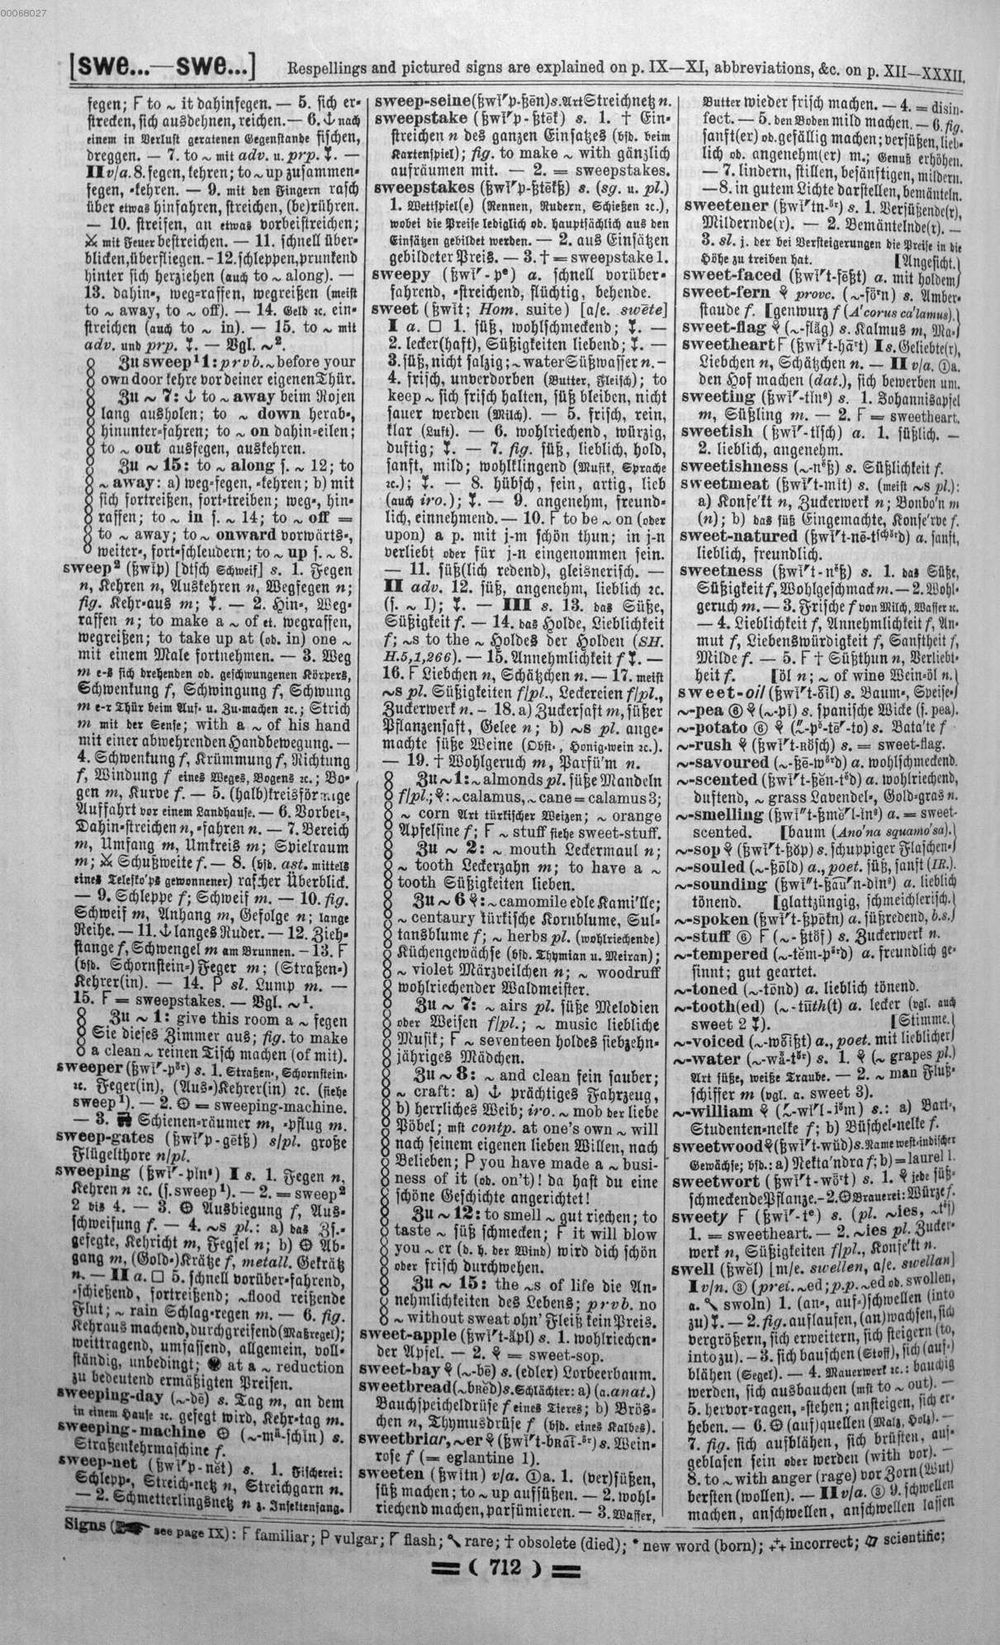 00068027
[swe...—swe...]
Respellings and pictured signs are explained on p. IX—XI, abbreviations, &c. on p. XII—XXXII.
fegen; F to ~ it dahinfegen. — 5. sich er-
strecken, sich ausdehnen, reichen. — 6. ⚓ nach
einem in Verlust geratenen Gegenstande fischen,
dreggen. — 7. to ~ mit adv. u. prp. ⁊. —
II v/a. 8. fegen, kehren; to ~ up zusammen-
fegen, -kehren. — 9. mit den Fingern rasch
über etwas hinfahren, streichen, (be)rühren.
— 10. streifen, an etwas vorbeistreichen;
⚔ mit Feuer bestreichen. — 11. schnell über-
blicken, überfliegen. - 12. schleppen, prunkend
hinter sich herziehen (auch to ~ along). —
13. dahin-, weg-raffen, wegreißen (meist
to ~ away, to ~ off). — 14. Geld ꝛc. ein-
streichen (auch to ~ in). — 15. to ~ mit
adv. und prp. ⁊. — Vgl. ~².
Zu sweep¹ 1: prvb. ~ before your
own door kehre vor deiner eigenen Thür.
Zu ~ 7: ⚓ to ~ away beim Rojen
lang ausholen; to ~ down herab-,
hinunter-fahren; to ~ on dahin-eilen;
to ~ out ausfegen, auskehren.
Zu ~ 15: to ~ along s. ~ 12; to
~ away: a) weg-fegen, -kehren; b) mit
sich fortreißen, fort-treiben; weg-, hin-
raffen; to ~ in s. ~ 14; to ~ off =
to ~ away; to ~ onward vorwärts-,
weiter-, fort-schleudern; to ~ up s. ~ 8.
sweep² (ßwīp) [dtsch Schweif] s. 1. Fegen
n, Kehren n, Auskehren n, Wegfegen n;
fig. Kehr-aus m; ⁊. — 2. Hin-, Weg-
raffen n; to make a ~ of et. wegraffen,
wegreißen; to take up at (od. in) one ~
mit einem Male fortnehmen. — 3. Weg
m e-s sich drehenden od. geschwungenen Körpers,
Schwenkung f, Schwingung f, Schwung
m e-r Thür beim Auf- u. Zu-machen ꝛc.; Strich
m mit der Sense; with a ~ of his hand
mit einer abwehrenden Handbewegung. —
4. Schwenkung f, Krümmung f, Richtung
f, Windung f eines Weges, Bogens ꝛc.; Bo-
gen m, Kurve f. — 5. (halb)kreisförmige
Auffahrt vor einem Landhause. — 6. Vorbei-,
Dahin-streichen n, -fahren n. — 7. Bereich
m, Umfang m, Umkreis m; Spielraum
m; ⚔ Schußweite f. — 8. (bsd. ast. mittels
eines Telesko'ps gewonnener) rascher Überblick.
— 9. Schleppe f; Schweif m. — 10. fig.
Schweif m, Anhang m, Gefolge n; lange
Reihe. — 11. ⚓ langes Ruder. — 12. Zieh-
stange f, Schwengel m am Brunnen. — 13. F
(bsd. Schornstein-) Feger m; (Straßen-)
Kehrer(in). — 14. P sl. Lump m. —
15. F = sweepstakes. — Vgl. ~¹.
Zu ~ 1: give this room a ~ fegen
Sie dieses Zimmer aus; fig. to make
a clean ~ reinen Tisch machen (of mit).
sweeper (ßwī'-pᵉr) s. 1. Straßen-, Schornstein-
ꝛc. Feger(in), (Aus-)Kehrer(in) ꝛc. (siehe
sweep¹). — 2. ⚙ = sweeping-machine.
— 3. Schienen-räumer m, -pflug m.
sweep-gates (ßwī'p-gētß) s/pl. große
Flügelthore n/pl.
sweeping (ßwī'-pĭnᵍ) I s. 1. Fegen n,
Kehren n ꝛc. (s. sweep¹). — 2. = sweep²
2 bis 4. — 3. ⚙ Ausbiegung f, Aus-
schweifung f. — 4. ~s pl.: a) das Zs.-
gefegte, Kehricht m, Fegsel n; b) ⚙ Ab-
gang m, (Gold-)Krätze f, metall. Gekrätz
n. — II a. □ 5. schnell vorüber-fahrend,
-schießend, fortreißend; ~ flood reißende
Flut; ~ rain Schlag-regen m. — 6. fig.
Kehraus machend, durchgreifend (Maßregel);
weittragend, umfassend, allgemein, voll-
ständig, unbedingt; at a ~ reduction
zu bedeutend ermäßigten Preisen.
sweeping-day (~-dē) s. Tag m, an dem
in einem Hause ꝛc. gefegt wird, Kehr-tag m.
sweeping-machine ⚙ (~-mᵃ-schīn) s.
Straßenkehrmaschine f.
sweep-net (ßwī'p-nĕt) s. 1. Fischerei:
Schlepp-, Streich-netz n, Streichgarn n.
— 2. Schmetterlingsnetz n z. Insektenfang.
sweep-seine (ßwī'p-ßēn) s. Art Streichnetz n.
sweepstake (ßwī'p-ßtēk) s. 1. † Ein-
streichen n des ganzen Einsatzes (bsd. beim
Kartenspiel); fig. to make ~ with gänzlich
aufräumen mit. — 2. = sweepstakes.
sweepstakes (ßwī'p-ßtēkß) s. (sg. u. pl.)
1. Wettspiel(e) (Rennen, Rudern, Schießen ꝛc.),
wobei die Preise lediglich od. hauptsächlich aus den
Einsätzen gebildet werden. — 2. aus Einsätzen
gebildeter Preis. — 3. † = sweepstake 1.
sweepy (ßwī'-pᵉ) a. schnell vorüber-
fahrend, -streichend, flüchtig, behende.
sweet (ßwīt; Hom. suite) [a/e. swēte]
I a. □ 1. süß, wohlschmeckend; ⁊. —
2. lecker(haft), Süßigkeiten liebend; ⁊. —
3. süß, nicht salzig; ~ water Süßwasser n. —
4. frisch, unverdorben (Butter, Fleisch); to
keep ~ sich frisch halten, süß bleiben, nicht
sauer werden (Milch). — 5. frisch, rein,
klar (Luft). — 6. wohlriechend, würzig,
duftig; ⁊. — 7. fig. süß, lieblich, hold,
sanft, mild; wohlklingend (Musik, Sprache
ꝛc.); ⁊. — 8. hübsch, fein, artig, lieb
(auch iro.); ⁊. — 9. angenehm, freund-
lich, einnehmend. — 10. F to be ~ on (oder
upon) a p. mit j-m schön thun; in j-n
verliebt oder für j-n eingenommen sein.
— 11. süß(lich redend), gleisnerisch. —
II adv. 12. süß, angenehm, lieblich ꝛc.
(s. ~ I); ⁊. — III s. 13. das Süße,
Süßigkeit f. — 14. das Holde, Lieblichkeit
f; ~s to the ~ Holdes der Holden (SH.
H.5,1,266). — 15. Annehmlichkeit f ⁊. —
16. F Liebchen n, Schätzchen n. — 17. meist
~s pl. Süßigkeiten f/pl., Leckereien f/pl.,
Zuckerwerk n. - 18. a) Zuckersaft m, süßer
Pflanzensaft, Gelee n; b) ~s pl. ange-
machte süße Weine (Obst-, Honig-wein ꝛc.).
— 19. † Wohlgeruch m, Parfü'm n.
Zu ~ 1: ~ almonds pl. süße Mandeln
f/pl.; ⚘: ~ calamus, ~ cane = calamus 3;
~ corn Art türkischer Weizen; ~ orange
Apfelsine f; F ~ stuff siehe sweet-stuff.
Zu ~ 2: ~ mouth Leckermaul n;
~ tooth Leckerzahn m; to have a ~
tooth Süßigkeiten lieben.
Zu ~ 6 ⚘: ~ camomile edle Kami'lle;
~ centaury türkische Kornblume, Sul-
tansblume f; ~ herbs pl. (wohlriechende)
Küchengewächse (bsd. Thymian u. Meiran);
~ violet Märzveilchen n; ~ woodruff
wohlriechender Waldmeister.
Zu ~ 7: ~ airs pl. süße Melodien
oder Weisen f/pl.; ~ music liebliche
Musik; F ~ seventeen holdes siebzehn-
jähriges Mädchen.
Zu ~ 8: ~ and clean fein sauber;
~ craft: a) ⚓ prächtiges Fahrzeug,
b) herrliches Weib; iro. ~ mob der liebe
Pöbel; mst contp. at one's own ~ will
nach seinem eigenen lieben Willen, nach
Belieben; P you have made a ~ busi-
ness of it (od. on't)! da hast du eine
schöne Geschichte angerichtet!
Zu ~ 12: to smell ~ gut riechen; to
taste ~ süß schmecken; F it will blow
you ~ er (d. h. der Wind) wird dich schön
oder frisch durchwehen.
Zu ~ 15: the ~s of life die An-
nehmlichkeiten des Lebens; prvb. no
~ without sweat ohn' Fleiß kein Preis.
sweet-apple (ßwī't-ăpl) s. 1. wohlriechen-
der Apfel. — 2. ⚘ = sweet-sop.
sweet-bay ⚘ (~-bē) s. (edler) Lorbeerbaum.
sweetbread (~brĕd) s. Schlächter: a) (a.anat.)
Bauchspeicheldrüse f eines Tieres; b) Brös-
chen n, Thymusdrüse f (bsd. eines Kalbes).
sweetbriar, ~er ⚘ (ßwī't-brāī-ᵉr) s. Wein-
rose f (= eglantine 1).
sweeten (ßwītn) v/a. ①a. 1. (ver)süßen,
süß machen; to ~ up aufsüßen. — 2. wohl-
riechend machen, parfümieren. — 3. Wasser,
Butter wieder frisch machen. — 4. = disin-
fect. — 5. den Boden mild machen. — 6. fig.
sanft(er) od. gefällig machen; versüßen, lieb-
lich od. angenehm(er) m.; Genuß erhöhen.
— 7. lindern, stillen, besänftigen, mildern.
— 8. in gutem Lichte darstellen, bemänteln.
sweetener (ßwī'tn-ᵉr) s. 1. Versüßende(r),
Mildernde(r). — 2. Bemäntelnde(r). —
3. sl. j. der bei Versteigerungen die Preise in die
Höhe zu treiben hat. [Angesicht.)
sweet-faced (ßwī't-fēßt) a. mit holdem)
sweet-fern ⚘ provc. (~-fö'rn) s. Amber-
staude f. [genwurz f (A'corus ca'lamus).)
sweet-flag ⚘ (~-flăg) s. Kalmus m, Ma-)
sweetheart F (ßwī't-hā'rt) I s. Geliebte(r),
Liebchen n, Schätzchen n. — II v/a. ①a.
den Hof machen (dat.), sich bewerben um.
sweeting (ßwī'-tĭnᵍ) s. 1. Johannisapfel
m, Süßling m. — 2. F = sweetheart.
sweetish (ßwī'-tĭsch) a. 1. süßlich. —
2. lieblich, angenehm.
sweetishness (~-nᵉß) s. Süßlichkeit f.
sweetmeat (ßwī't-mīt) s. (meist ~s pl.):
a) Konfe'kt n, Zuckerwerk n; Bonbo'n m
(n); b) das süß Eingemachte, Konse'rve f.
sweet-natured (ßwī't-nē-tschᵉrd) a. sanft,
lieblich, freundlich.
sweetness (ßwī't-nᵉß) s. 1. das Süße,
Süßigkeit f, Wohlgeschmack m. — 2. Wohl-
geruch m. — 3. Frische f von Milch, Wasser ꝛc.
— 4. Lieblichkeit f, Annehmlichkeit f, An-
mut f, Liebenswürdigkeit f, Sanftheit f,
Milde f. — 5. F † Süßthun n, Verliebt-
heit f. [öl n; ~ of wine Wein-öl n.)
sweet-oil (ßwī't-ŏīl) s. Baum-, Speise-)
~-pea ⑥ ⚘ (~-pī) s. spanische Wicke (s. pea).
~-potato ⑥ ⚘ (~-pᵒ-tē'-to) s. Bata'te f
~-rush ⚘ (ßwī't-rŏsch) s. = sweet-flag.
~-savoured (~-ßē-wᵉrd) a. wohlschmeckend.
~-scented (ßwī't-ßĕn-tᵉd) a. wohlriechend,
duftend, ~ grass Lavendel-, Gold-gras n.
~-smelling (ßwī"t-ßmĕ'l-ĭnᵍ) a. = sweet-
scented. [baum (Ano'na squamo'sa).)
~-sop ⚘ (ßwī't-ßŏp) s. schuppiger Flaschen-)
~-souled (~-ßōld) a., poet. süß, sanft (IR.).
~-sounding (ßwī"t-ßāū'n-dĭnᵍ) a. lieblich
tönend. [glattzüngig, schmeichlerisch.)
~-spoken (ßwī't-ßpōkn) a. süßredend, b.s.)
~-stuff ⑥ F (~-ßtŏf) s. Zuckerwerk n.
~-tempered (~-tĕm-pᵉrd) a. freundlich ge-
sinnt; gut geartet.
~-toned (~-tōnd) a. lieblich tönend.
~-tooth(ed) (~-tūth(t) a. lecker (vgl. auch
sweet 2 ⁊). [Stimme.)
~-voiced (~-wŏīßt) a., poet. mit lieblicher)
~-water (~-wå-tᵉr) s. 1. ⚘ (~ grapes pl.)
Art süße, weiße Traube. — 2. ~ man Fluß-
schiffer m (vgl. a. sweet 3).
~-william ⚘ (~-wĭ'l-jᵉm) s.: a) Bart-,
Studenten-nelke f; b) Büschel-nelke f.
sweetwood ⚘ (ßwī't-wŭd) s. Name west-indischer
Gewächse; bsd.: a) Nekta'ndra f; b) = laurel 1.
sweetwort (ßwī't-wö'rt) s. 1. ⚘ jede süß-
schmeckende Pflanze. - 2. ⚙ Brauerei: Würze f.
sweety F (ßwī'-tᵉ) s. (pl. ~ies, ~tᵉſ)
1. = sweetheart. — 2. ~ies pl. Zucker-
werk n, Süßigkeiten f/pl., Konfe'kt n.
swell (ßwĕl) [m/e. swellen, a/e. swellan]
I v/n. ③ (pret. ~ed; p.p. ~ed ob. swollen,
a. swoln) 1. (an-, auf-)schwellen (into
zu) ⁊. — 2. fig. auflaufen, (an)wachsen, sich
vergrößern, sich erweitern, sich steigern (to,
into zu). — 3. sich bauschen (Stoff), sich (auf-)
blähen (Segel). — 4. Mauerwerk ꝛc.: bauchig
werden, sich ausbauchen (mst to ~ out). —
5. hervor-ragen, -stehen; ansteigen, sich er-
heben. — 6. ⚙ (auf)quellen (Malz, Holz). —
7. fig. sich aufblähen, sich brüsten, auf-
geblasen sein oder werden (with vor). —
8. to ~ with anger (rage) vor Zorn (Wut)
bersten (wollen). — II v/a. ③ 9. schwellen
machen, anschwellen, anschwellen lassen
Signs (☞ see page IX): F familiar; P vulgar; Γ flash; rare; † obsolete (died); * new word (born); incorrect; scientific;
= ( 712 ) =